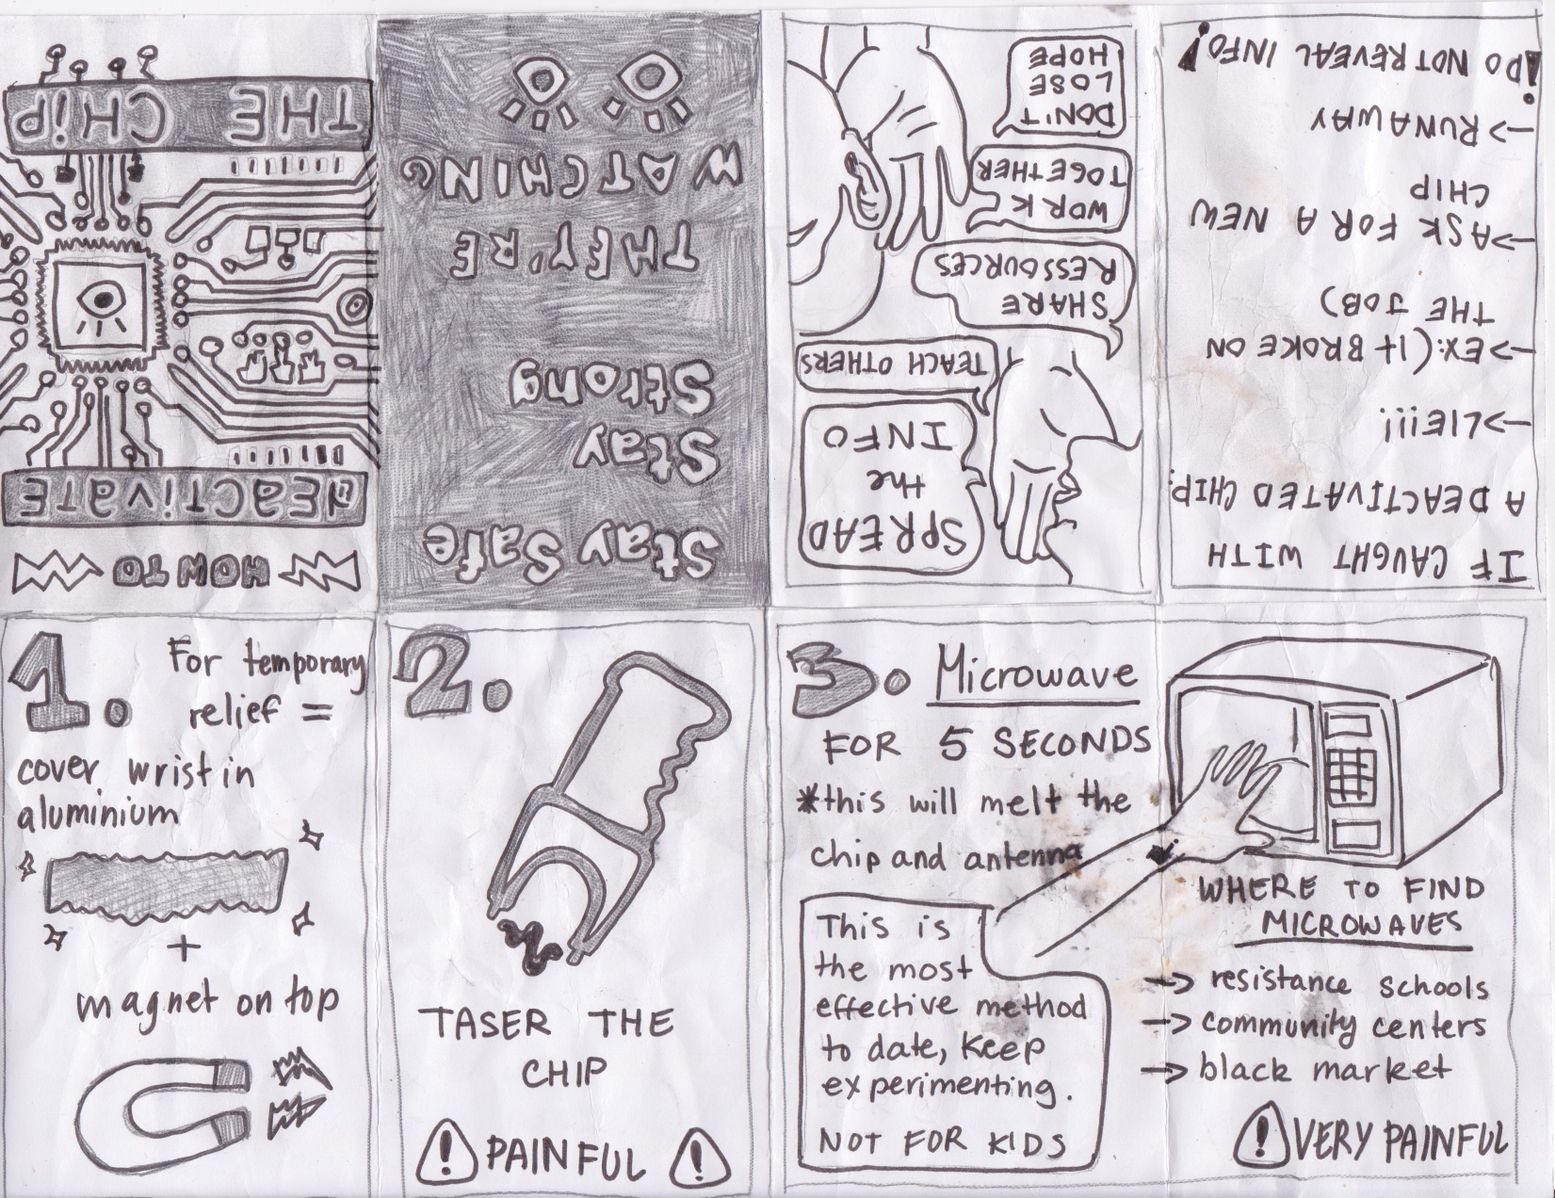 HOW TO
DEACTIVATE
THE CHiP
1.
For temporary
relief =
cover wrist in
aluminium
+
magnet on top
2.
TASER THE
CHIP
! PAINFUL !
3. Microwave
FOR 5 SECONDS
*this will melt the
chip and antenna
This is
the most
effective method
to date, keep
experimenting.
NOT FOR KIDS
WHERE TO FIND
MICROWAVES
-> resistance schools
-> community centers
-> black market
! VERY PAINFUL
IF CAUGHT WITH
A DEACTIVATED CHIP:
->LIE!!!
->EX:(It BROKE ON
THE JOB)
->ASK FOR A NEW
CHIP
->RUNAWAY
!DO NOT REVEAL INFO!
SPREAD
the
INFO
TEACH OTHERS
SHARE
RESSOURCES
WORK
TOGETHER
DON'T
LOSE
HOPE
Stay Safe
Stay
Strong
THEY'RE
WATCHING